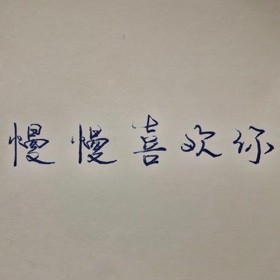 慢慢喜欢你